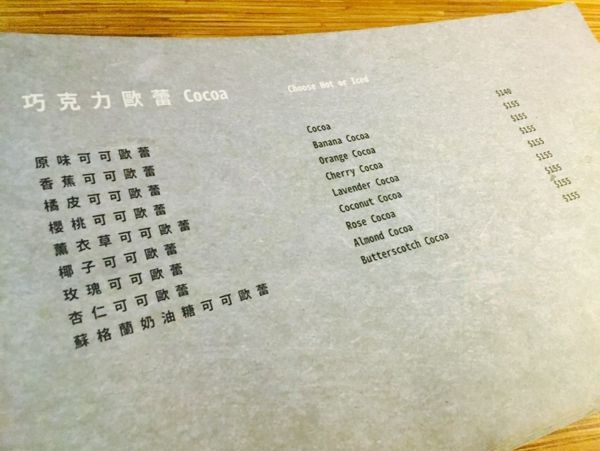 巧克力歐蕾 Cocoa Choose Hot or Iced
原味可可歐蕾 Cocoa $140
香蕉可可歐蕾 Banana Cocoa $155
橘皮可可歐蕾 Orange Cocoa $155
櫻桃可可歐蕾 Cherry Cocoa $155
薰衣草可可歐蕾 Lavender Cocoa $155
椰子可可歐蕾 Coconut Cocoa $155
玫瑰可可歐蕾 Rose Cocoa $155
杏仁可可歐蕾 Almond Cocoa $155
蘇格蘭奶油糖可可歐蕾 Butterscotch Cocoa $155